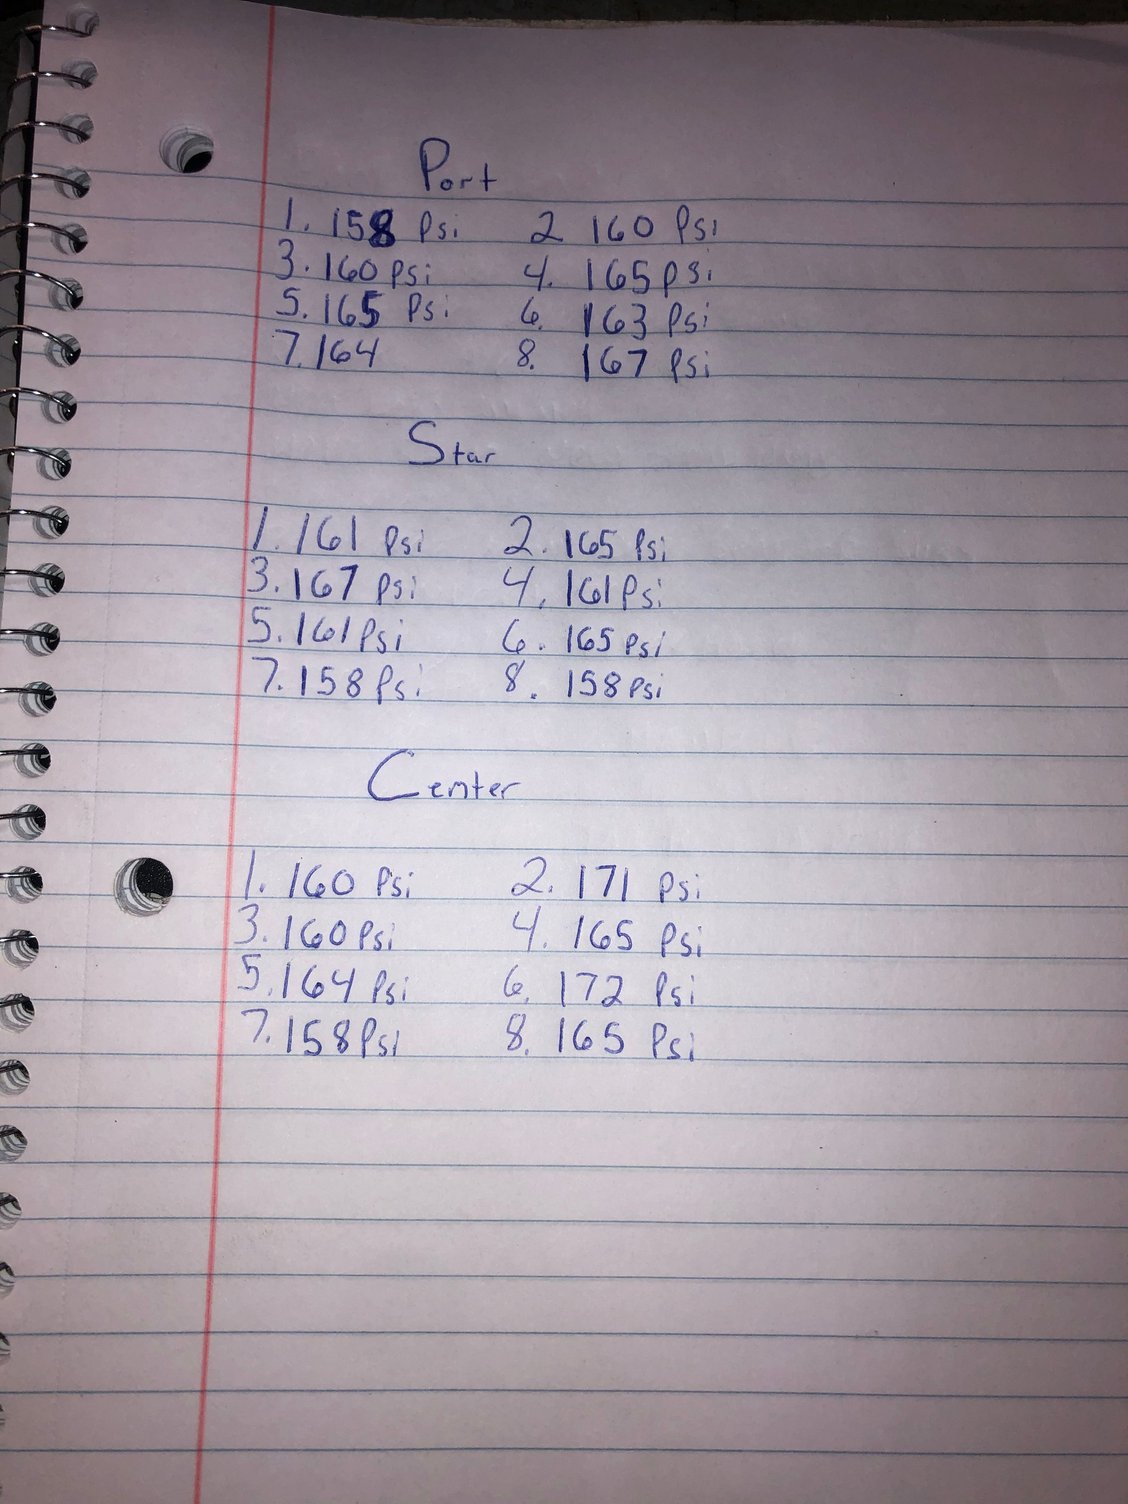 Port
1. 158 Psi 2 160 Psi
3. 160 psi 4. 165 psi
5. 165 Psi 6. 163 Psi
7. 164 8. 167 Psi
Star
1. 161 Psi 2. 165 Psi
3. 167 Psi 4. 161 Psi
5. 161 Psi 6. 165 Psi
7. 158 Psi 8. 158 Psi
Center
1. 160 Psi 2. 171 Psi
3. 160 Psi 4. 165 Psi
5. 164 Psi 6. 172 Psi
7. 158 Psi 8. 165 Psi